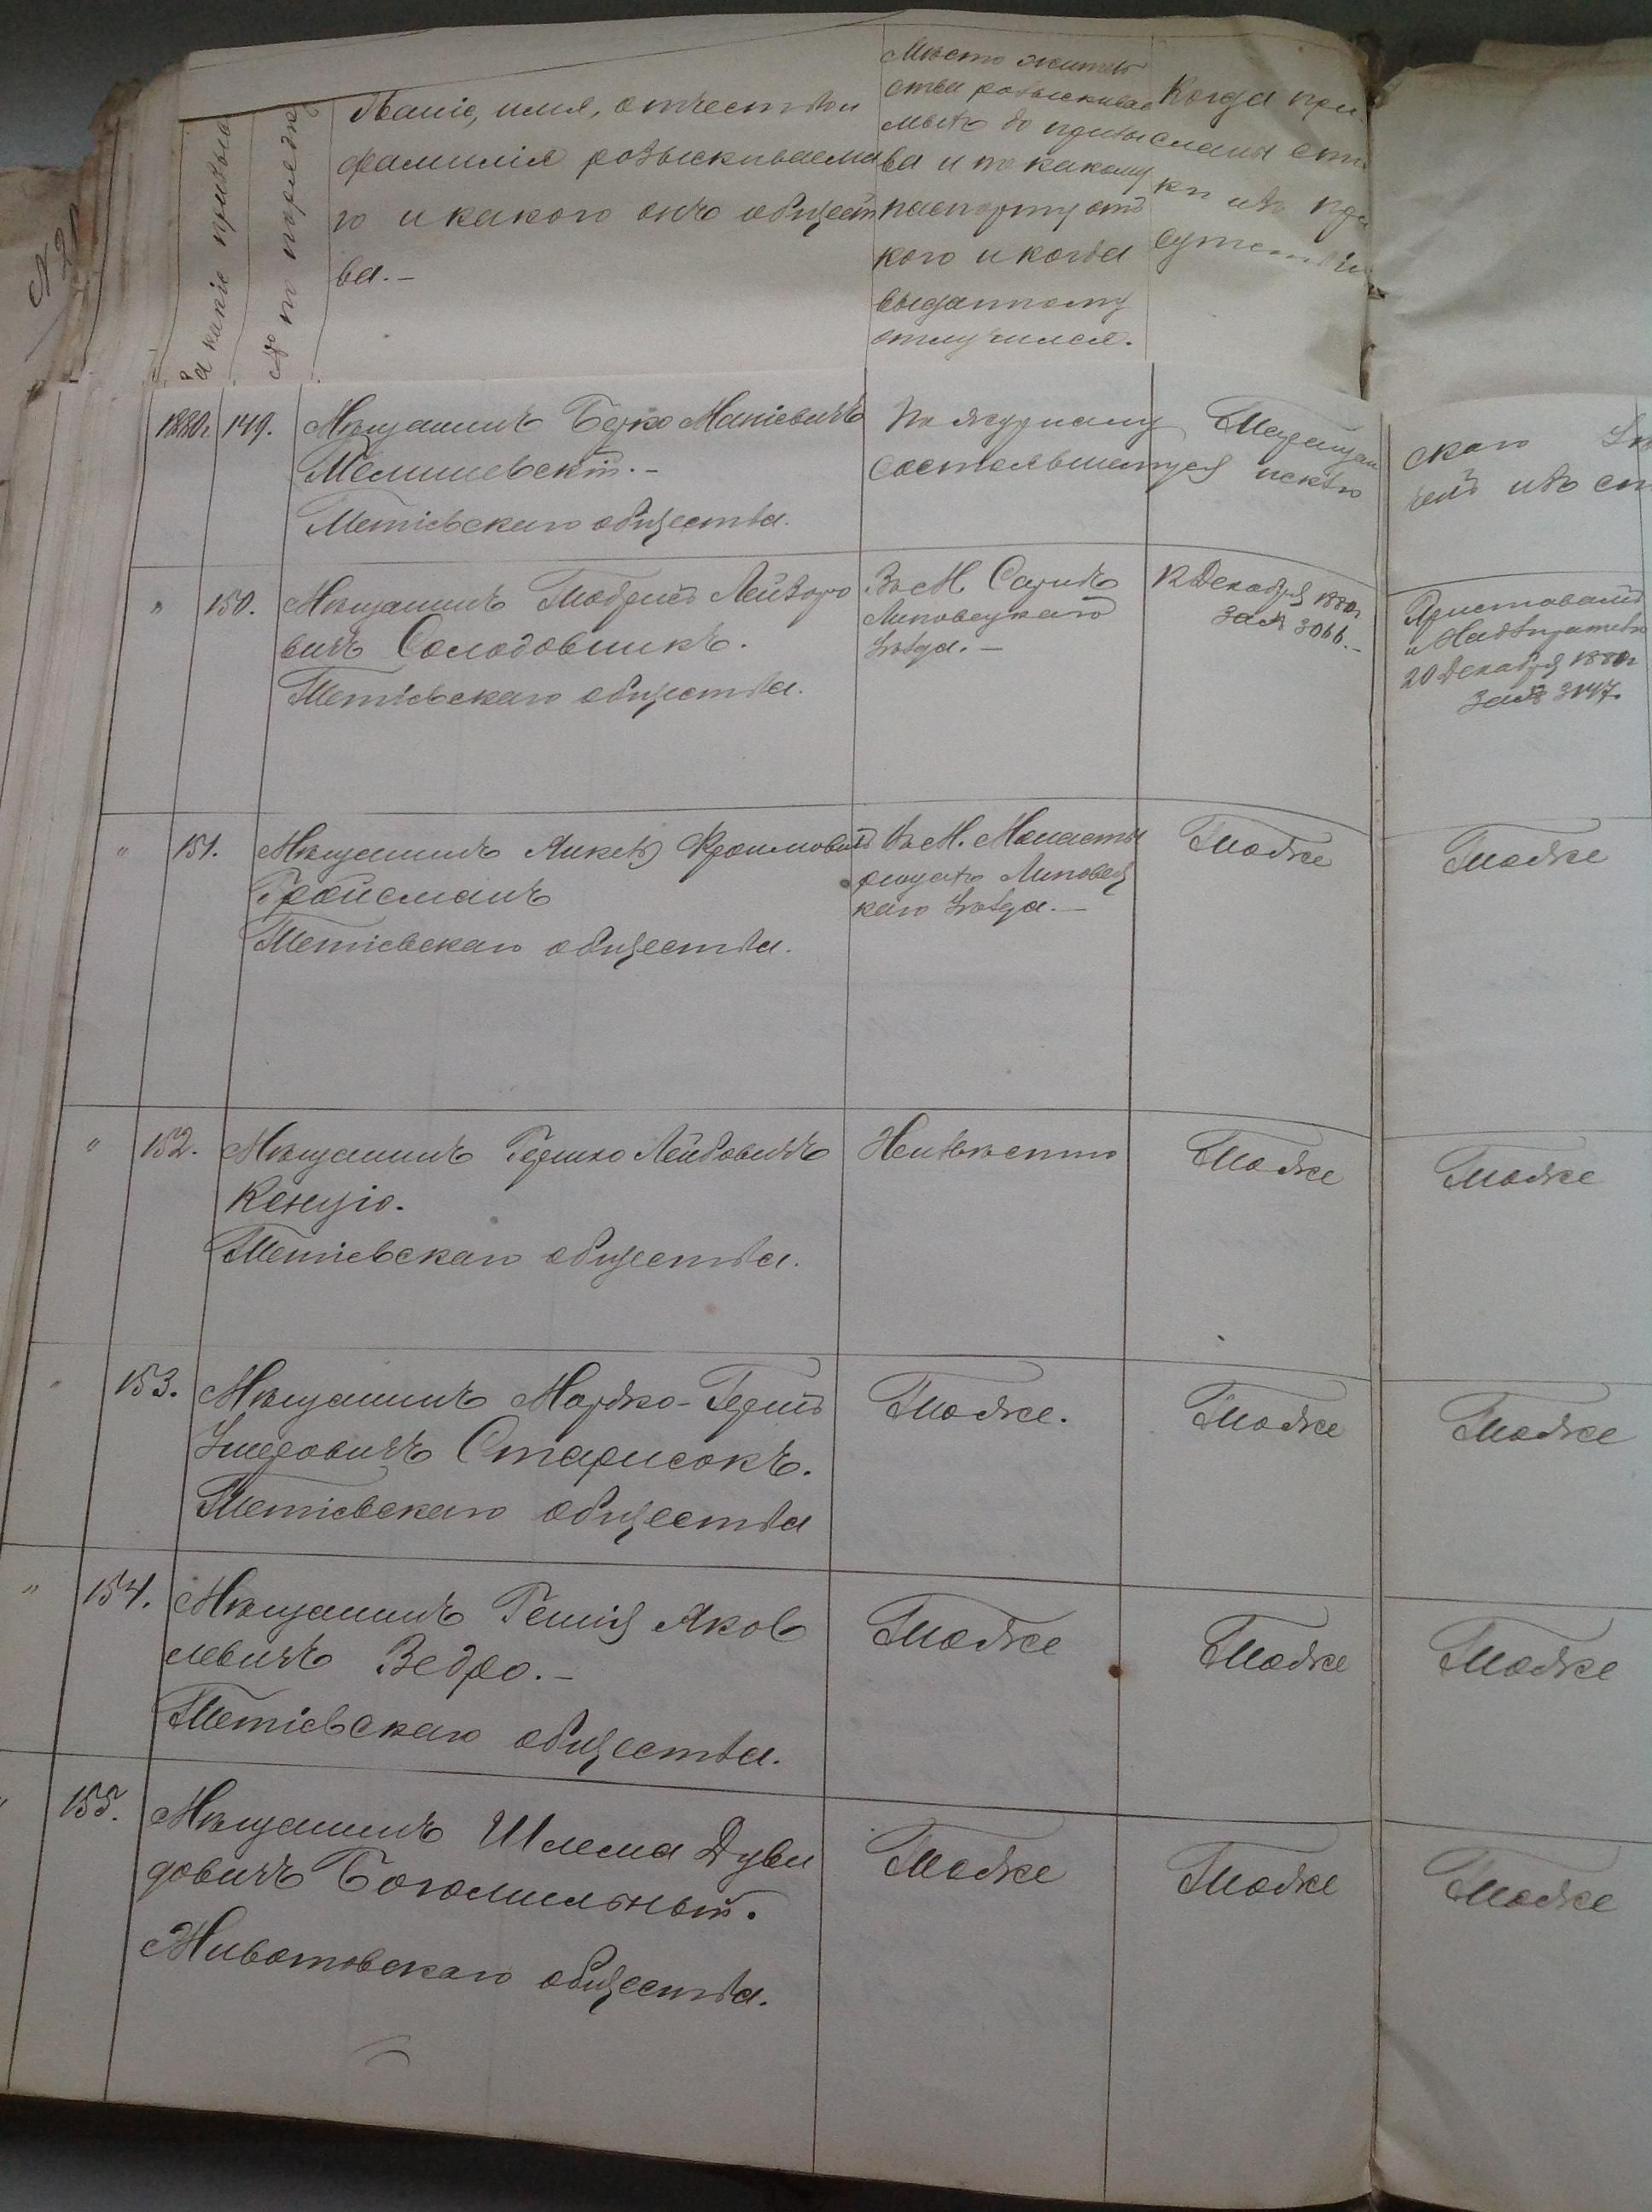 За какiе призывы
№ по порядку
Званiе, имя, отчество и
фамилiя розыскиваема
го и какого онъ общест
ва.-
Мѣсто житель
ства розыскивае
мыхъ до призы
ва и по какому
паспорту отъ
кого и когда
выданному
отлучился.
Когда при
сланы спис
ки изъ при
сутствiя
1880г. 149. Мѣщанинъ Берко Манiевичъ
Мелишевскiй.-
Тетiевскаго общества.
По журналу Таращан
состоявшемуся исклю
скаго
ченъ изъ сп
" 150. Мѣщанинъ Товрий Лейзоро
вичъ Солодовникъ.
Тетiевскаго общества.
Въ М. Саринъ
Липовецкаго
Уѣзда.-
12 Декабря 1880г
за № 3066.-
Приставамъ
и Надзирателю
20 Декабря 1880г
за № 3147.
" 151. Мѣщанинъ Янкель Фроимовичъ
Гройсманъ
Тетiевскаго общества.
Въ М. Монасты
рищахъ Липовец
каго Уѣзда.-
Тоже
Тоже
" 152. Мѣщанинъ Гершко Лейбовичъ
Кенцiо.
Тетiевскаго общества.
Неизвѣстно
Тоже
Тоже
" 153. Мѣщанинъ Мордко-Гершъ
Умеровичъ Старисокъ.
Тетiевскаго общества
Тоже.
Тоже
Тоже
" 154. Мѣщанинъ Гешiя Яков
левичъ Ведро.-
Тетiевскаго общества.
Тоже
Тоже
Тоже
" 155. Мѣщанинъ Шлема Дуви
довичъ Богомильный.
Животовскаго общества.
Тоже
Тоже
Тоже